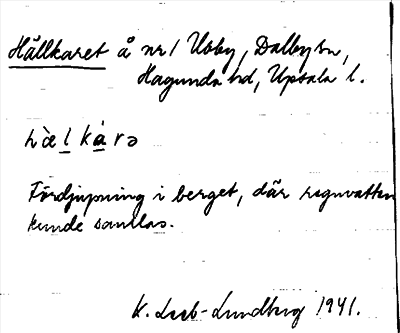 Hällkaret å nr 1 Ubby, Dalby sn,
Hagunda hd, Upsala l.
hὰl kárə
Fördjupning i berget, där regnvatten
kunde samlas.
K. Lundberg 1941.